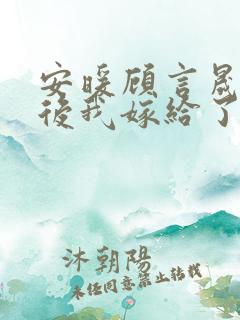 安暖顾言晟
後我嫁給了
沐朝陽
未经同意禁止转载